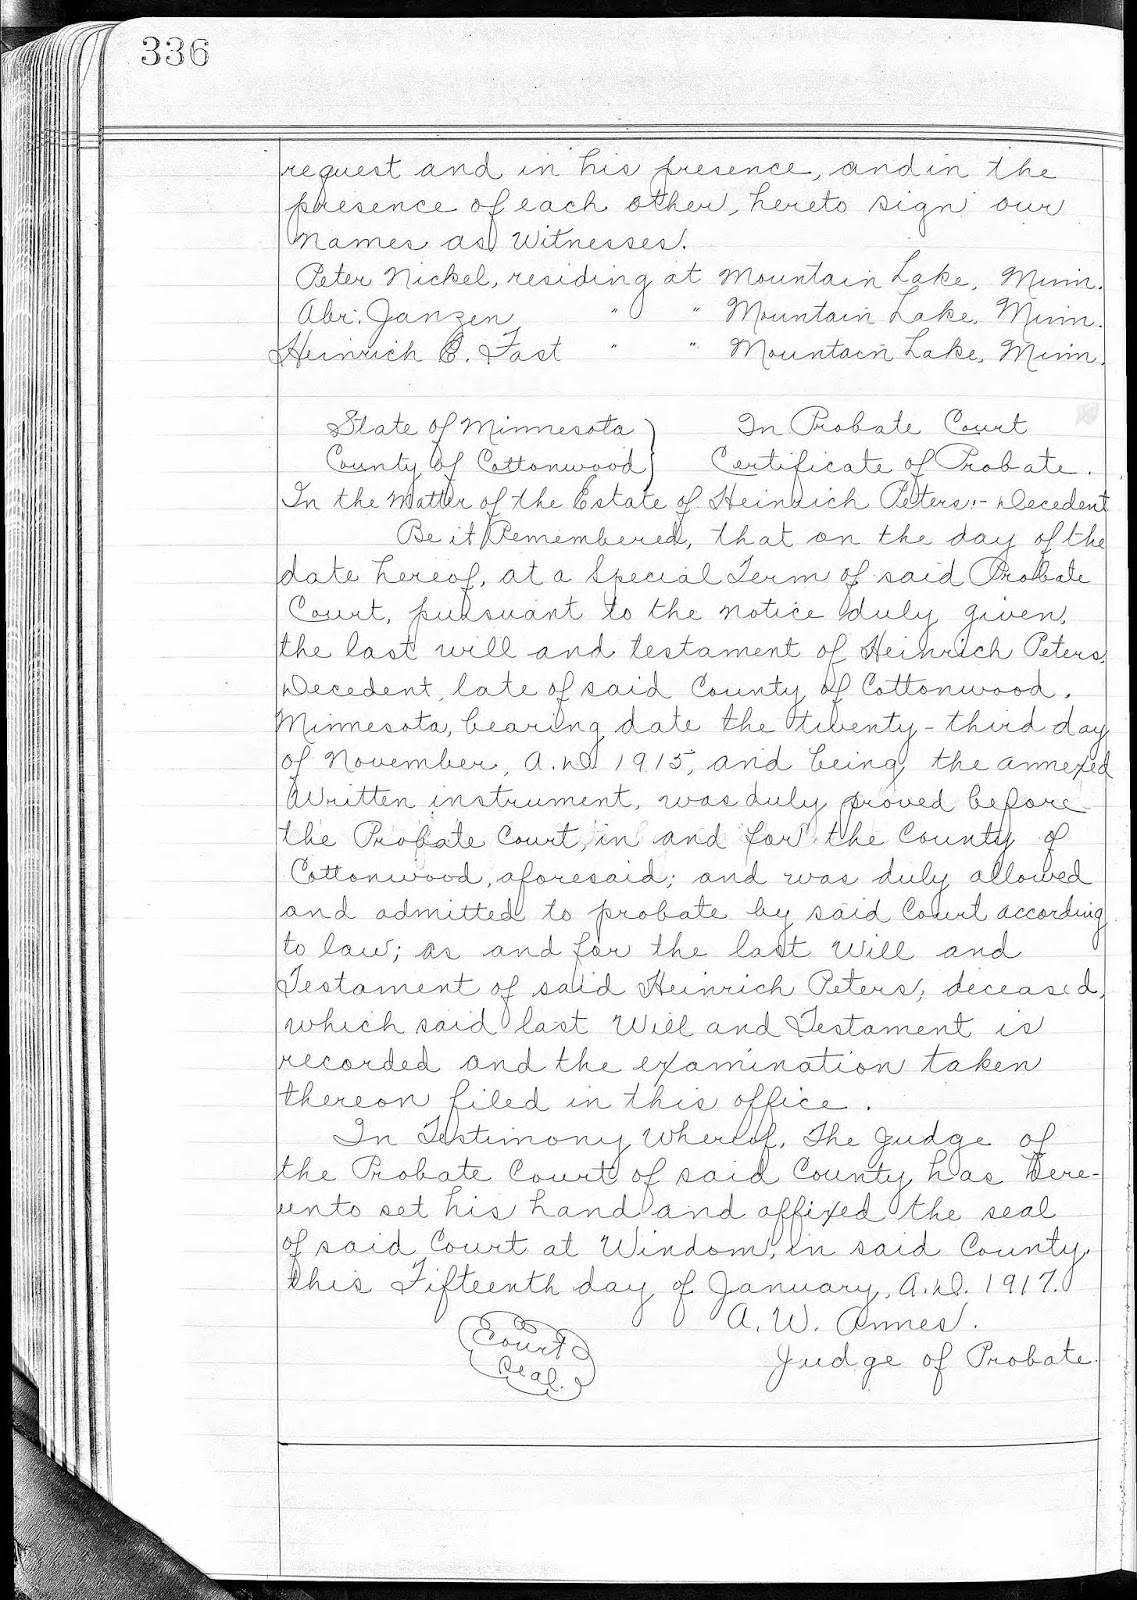 336
request and in his presence, and in the
presence of each other, hereto sign our
names as Witnesses.
Peter Nickel, residing at Mountain Lake, Minn.
Abr. Janzen " " Mountain Lake, Minn.
Heinrich E. Fast " " Mountain Lake, Minn.
State of Minnesota } In Probate Court
County of Cottonwood } Certificate of Probate.
In the Matter of the Estate of Heinrich Peters:- Decedent
Be it Remembered, that on the day of the
date hereof, at a Special Term of said Probate
Court, pursuant to the notice duly given,
the last will and testament of Heinrich Peters,
Decedent, late of said County of Cottonwood,
Minnesota, bearing date the twenty-third day
of November, A.D. 1915, and being the annexed
Written instrument, was duly proved before
the Probate Court, in and for the County of
Cottonwood, aforesaid; and was duly allowed
and admitted to probate by said Court according
to law; as and for the last Will and
Testament of said Heinrich Peters, deceased,
which said last Will and Testament is
recorded and the examination taken
thereon filed in this office.
In Testimony Whereof, The Judge of
the Probate Court of said County has here-
unto set his hand and affixed the seal
of said Court at Windom, in said County
this Fifteenth day of January, A.D. 1917.
A. W. Annes.
Court
Seal.
Judge of Probate.